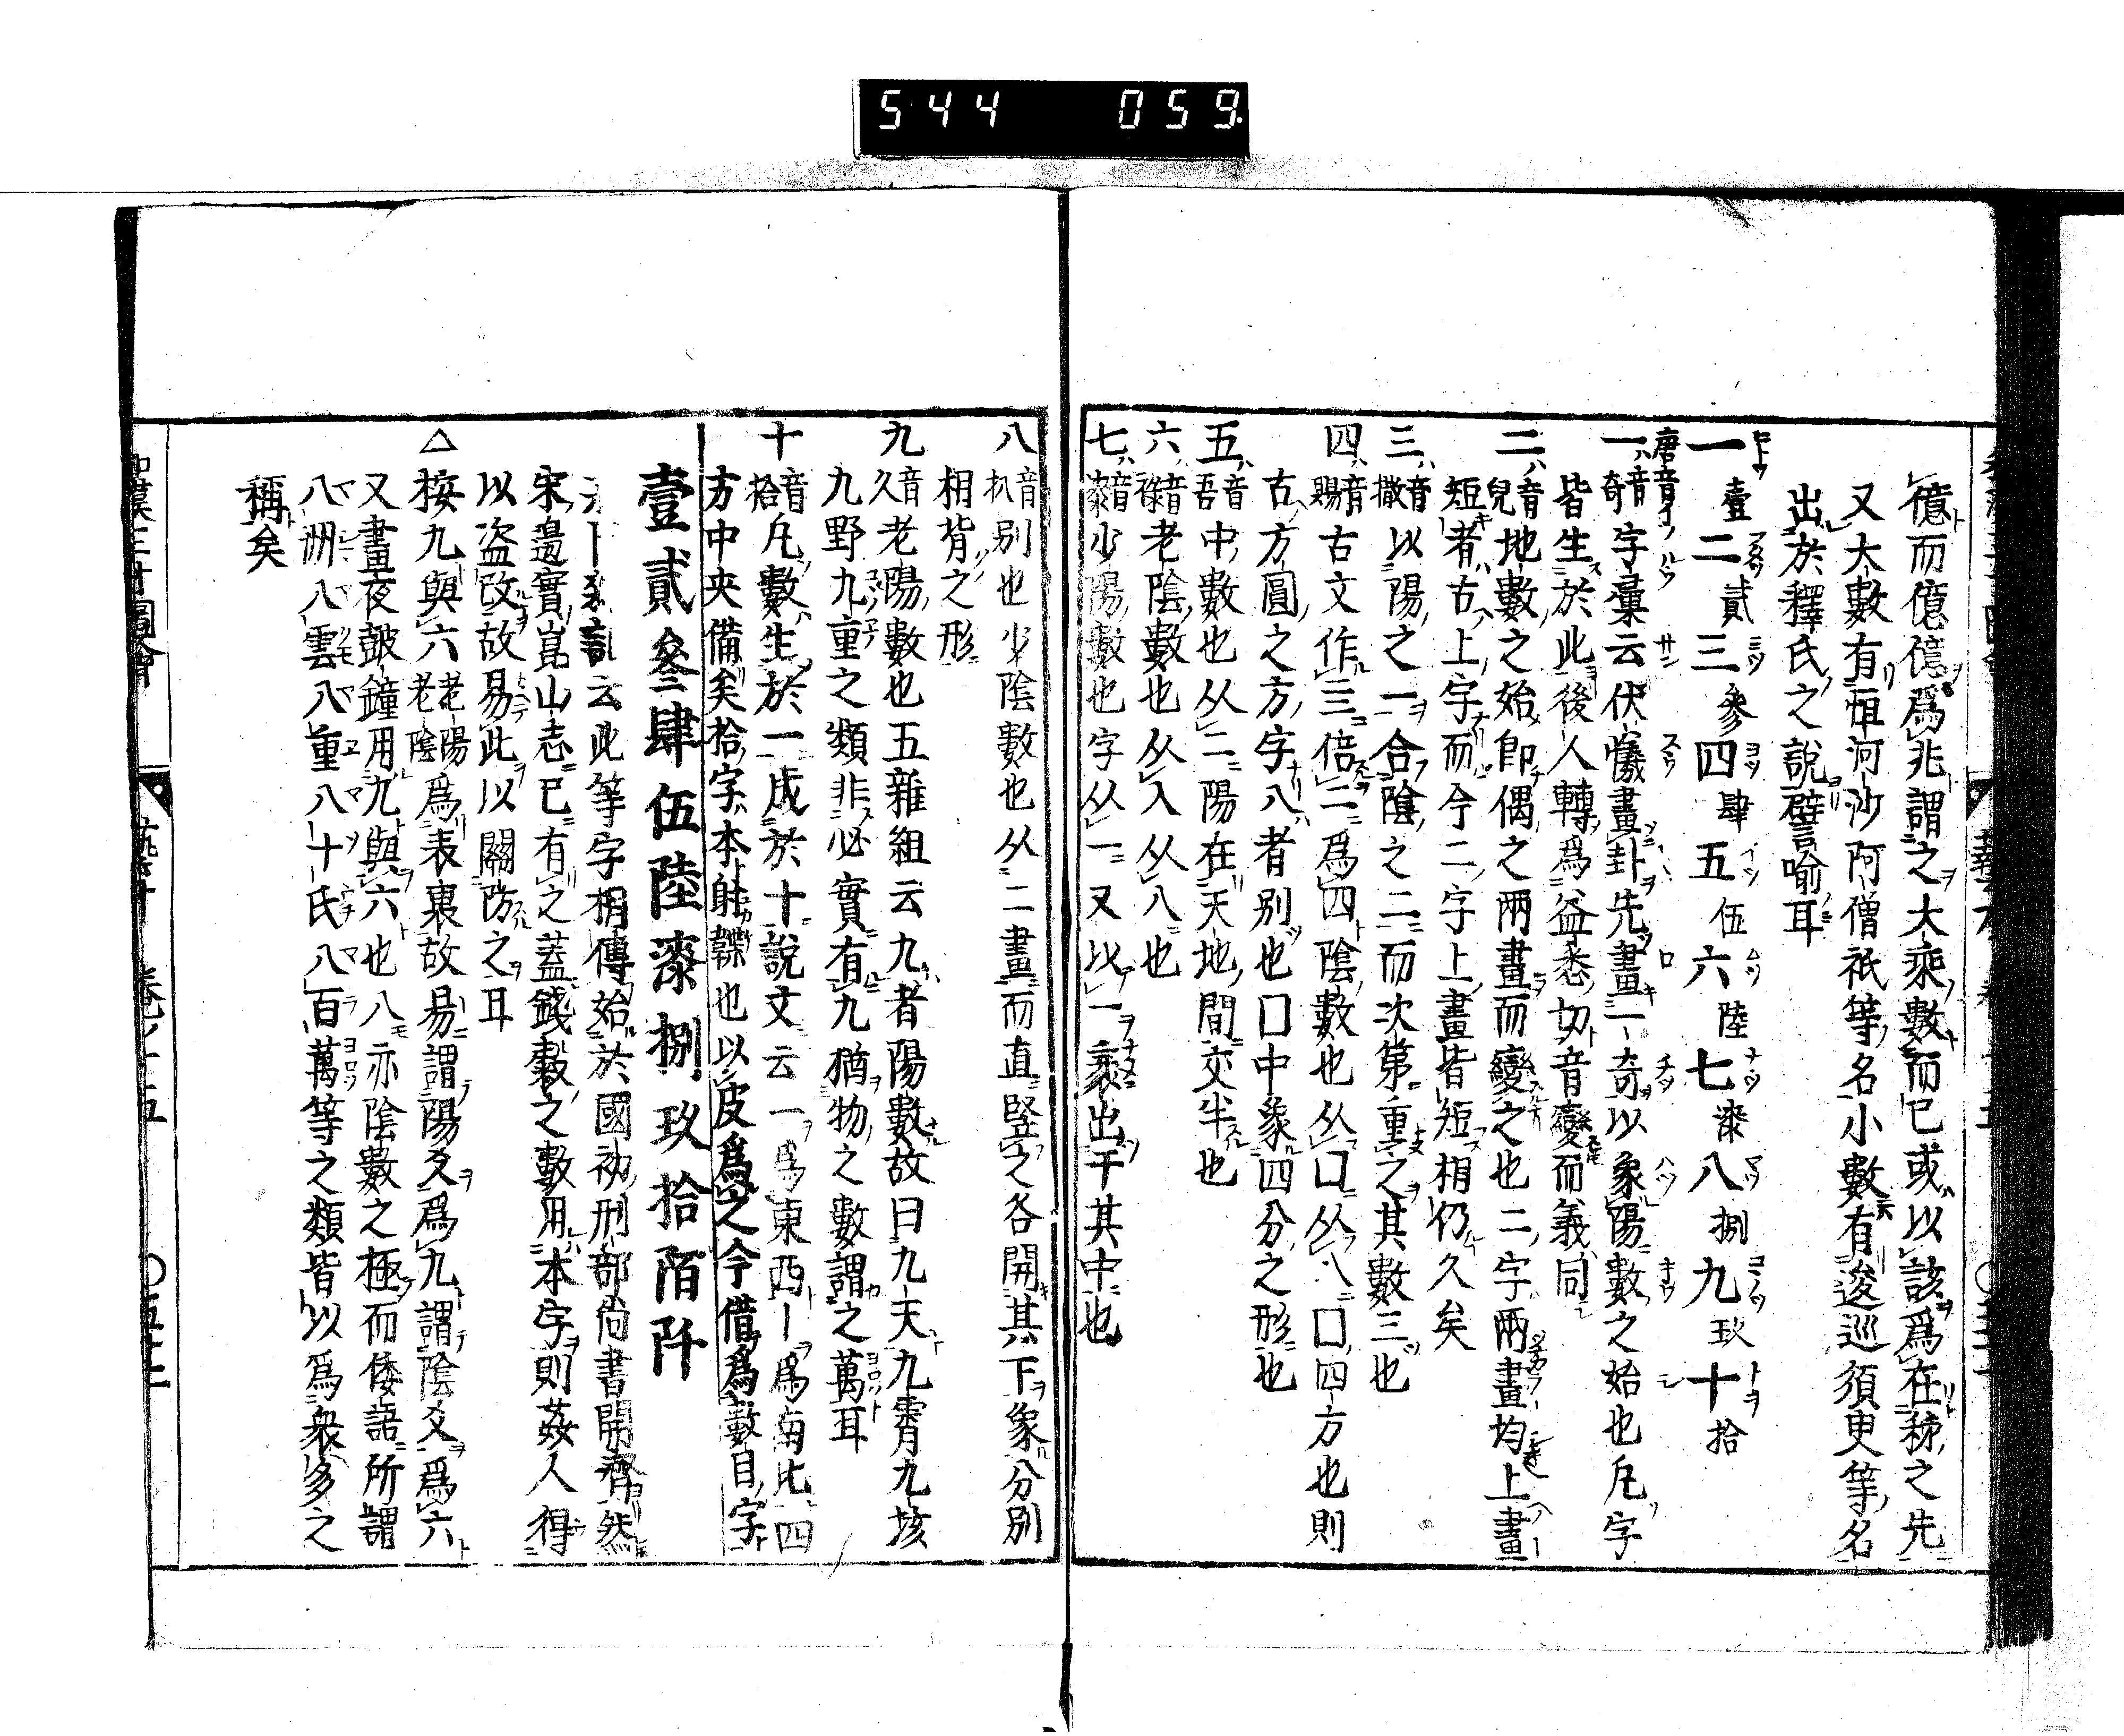 544 059
億而億億爲兆謂之大乘數而已或以該爲在秭之先
又大數有恒河沙阿僧祇等名小數有逡巡須臾等名
出於釋氏之說譬喻耳
一壹二貳三參四肆五伍六陸七漆八捌九玖十拾
唐音イルウ サン スウ ロ チツ ハツ キウ シ
一音奇字彙云伏犧畫卦先畫一奇以象陽數之始也凡字
皆生於此後人轉爲益悉切音變而義同
二音兒地數之始卽偶之兩畫而變之也二字兩畫均上畫
短者古上字而今二字上畫皆短相仍久矣
三音撒以陽之一合陰之二而次第重之其數三也
四音賜古文作三倍二爲四陰數也从囗从八囗四方也則
古方圓之方字八者別也囗中象四分之形也
五音吾中數也从二陽在天地間交半也
六音老陰數也从入从八也
七音漆少陽數也字从一又以一衺出于其中也
八音扒别也少陰數也从二畫而直豎之各開其下象分別
相背之形
九音久老陽數也五雜組云九者陽數故曰九天九霄九垓
九野九重之類非必實有九猶物之數謂之萬耳
十音拾凡數生於一成於十說文云一爲東西丨爲南北四
方中央備矣拾字本射韘也以皮爲之今借爲數目字
壹貳參肆伍陸漆捌玖拾陌阡
云此等字相傳始於國初刑部尚書開濟然
宋邊實崑山志已有之蓋錢穀之數用本字則姦人得
以盜改故易此以關防之耳
△按九與六老陽老陰爲表裏故易謂陽爻爲九謂陰爻爲六
又晝夜皷鐘用九與六也八亦陰數之極而倭語所謂
八洲八雲八重八十氏八百萬等之類皆以爲衆多之
稱矣